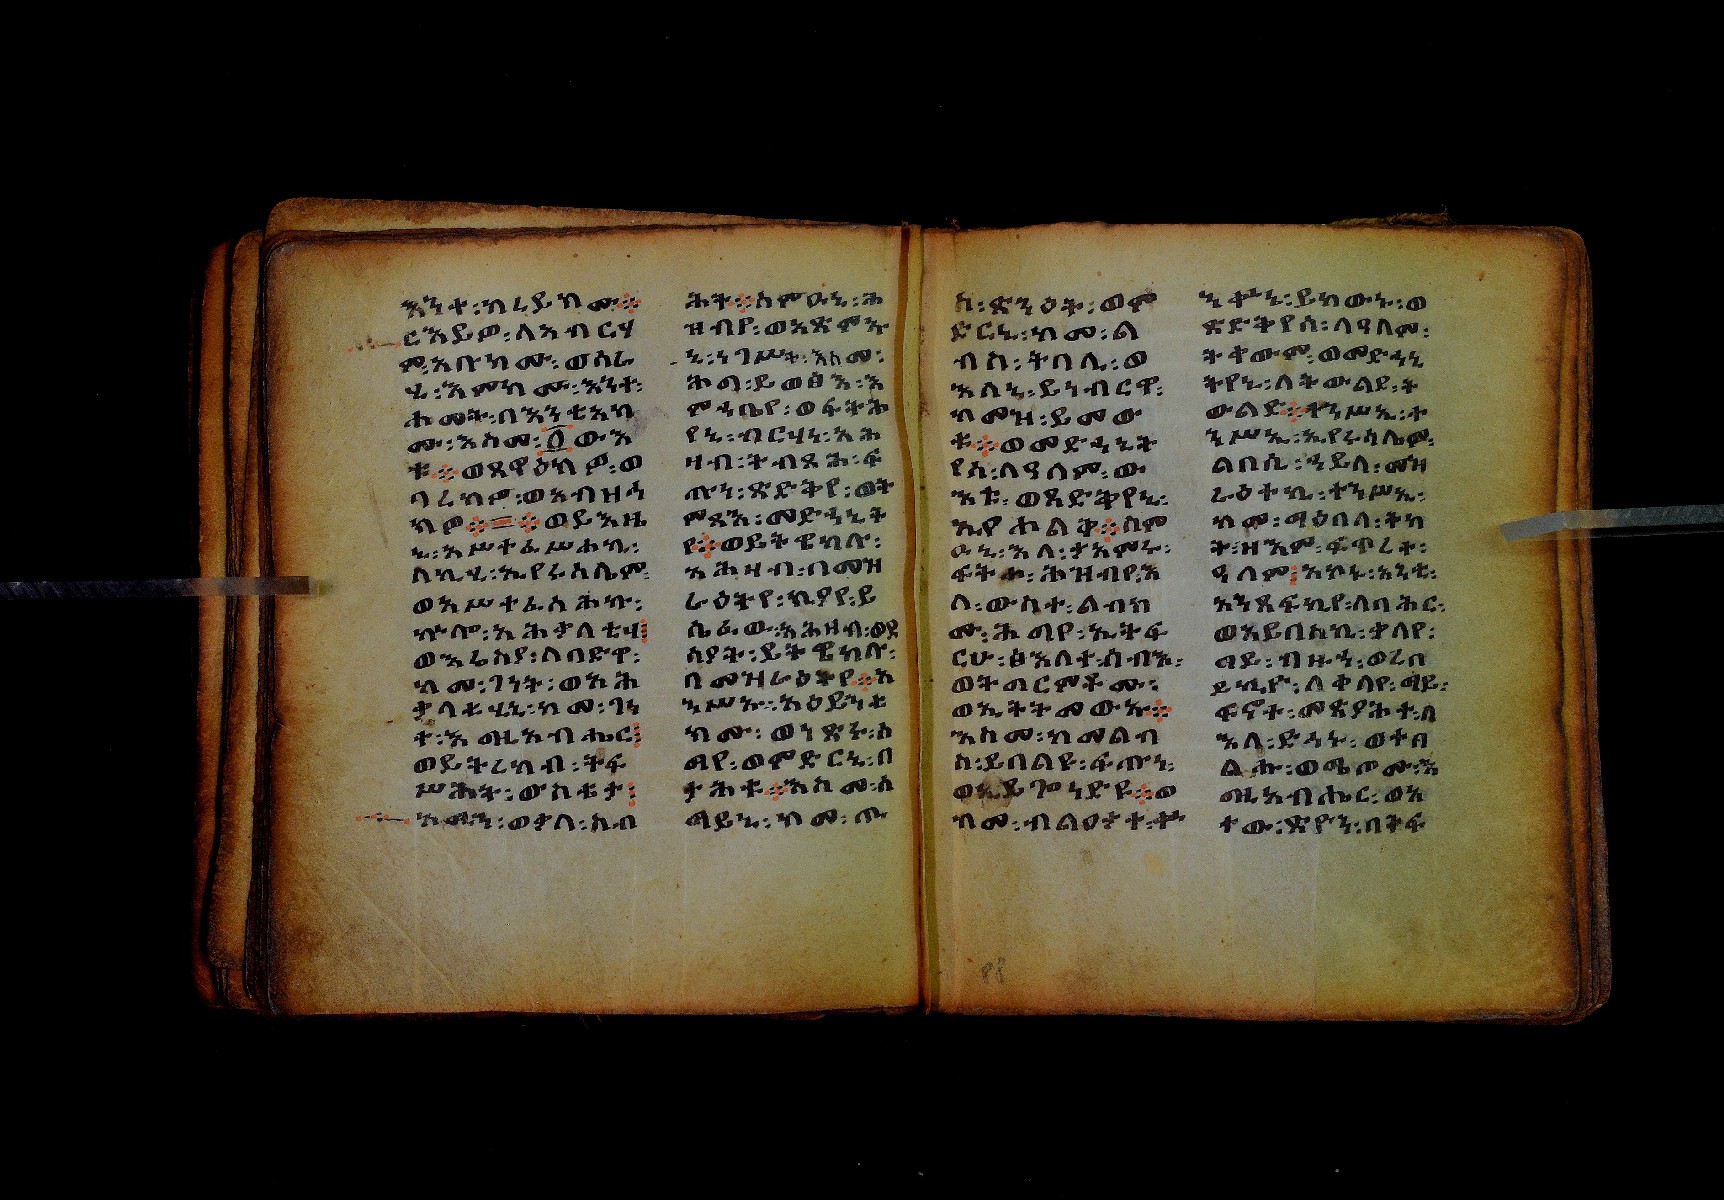 እንተ፡ከረይክሙ።
ርእይዎ፡ለአብርሃ
ም፡አቡክሙ፡ወሰራ
ሃ፡እምክሙ፡እንተ፡
ሐመት፡በእንቲአክ
ሙ፡እስመ፡፩ውእ
ቱ።ወጸዋዕክዎ፡ወ
ባረክዎ፡ወአብዛኅ
ክዎ።ወይእዜ
ኒ፡አሥተፈሥሐኪ፡
ለኪ፡ኢየሩሳሌም፡
ወአሥተፈሳሕኩ፡
ኵሎ፡አሕቃላቲሃ፡
ወእሬስያ፡ለበድዋ፡
ከመ፡ገነት፡ወአሕ
ቃላቲሃኒ፡ከመ፡ገነ
ተ፡እግዚአብሔር፡
ወይትረከብ፡ትፍ
ሥሕት፡ውስቴታ፡
እሙን፡ወቃለ፡ስብ
ሕት።ስምዑኒ፡ሕ
ዝብየ፡ወአጽምኡ
ኒ፡ነገሥት፡እስመ፡
ሕግ፡ይወፅእ፡እ
ምኀቤየ፡ወፍትሕ
የኒ፡ብርሃነ፡አሕ
ዛብ፡ትብጻሕ፡ፍ
ጡነ፡ጽድቅየ፡ወት
ምጻእ፡መድኃኒት
የ።ወይትዌከሉ፡
አሕዛብ፡በመዝ
ራዕትየ፡ኪያየ፡ይ
ሴፈው፡አሕዛብ፡ወደ
ሰያት፡ይትዌከሉ፡
በመዝራዕትየ።አ
ንሥኡ፡አዕይንቲ
ክሙ፡ወነጽሩ፡ሰ
ማየ፡ወምድርኒ፡በ
ታሕቱ።እስመ፡ሰ
ማይኒ፡ከመ፡ጢ
ስ፡ጽንዕት፡ወም
ድርኒ፡ከመ፡ል
ብስ፡ትበሊ፡ወ
እለኒ፡ይነብርዋ፡
ከመዝ፡ይመው
ቱ።ወመድኃኒት
የሰ፡ለዓለም፡ው
እቱ፡ወጽድቅየኒ፡
ኢየሐልቅ።ስም
ዑኒ፡እለ፡ታአምሩ፡
ፍትሐ፡ሕዝብየ፡እ
ለ፡ውስተ፡ልብክ
ሙ፡ሕግየ፡ኢትፍ
ርሁ፡ፅእለተ፡ሰብእ፡
ወትግርምቶሙ፡
ወኢትትመውኡ።
እስመ፡ከመልብ
ስ፡ይበልዮ፡ፍጡነ፡
ወኢይጐነድዩ።ወ
ከመ፡ብልዕታተ፡ቍ
ንቍኔ፡ይከውኑ፡ወ
ጽድቅየሰ፡ለዓለም፡
ትቀውም፡ወመድኃኒ
ትየኒ፡ለትውልደ፡ት
ውልድ።ተንሥኢ፡ተ
ንሥኢ፡ኢየሩሳሌም፡
ልበሲ፡ኃይለ፡መዝ
ራዕተኪ፡ተንሥኢ፡
ከመ፡ማዕበለ፡ትክ
ት፡ዘእም፡ፍጥረተ፡
ዓለም፡አኮኑ፡አንቲ፡
አንጸፍኪየ፡ለባሕር፡
ወአይበስኪ፡ቃላየ፡
ማይ፡ብዙኀ፡ወረሰ
ይኪዮ፡ለቀላየ፡ማይ፡
ፍኖተ፡መጽያሕተ፡ለ
እለ፡ድኅኑ፡ወተበ
ልሑ፡ወሜጦሙ፡እ
ግዚአብሔር፡ወአ
ተው፡ጽዮን፡በትፍ